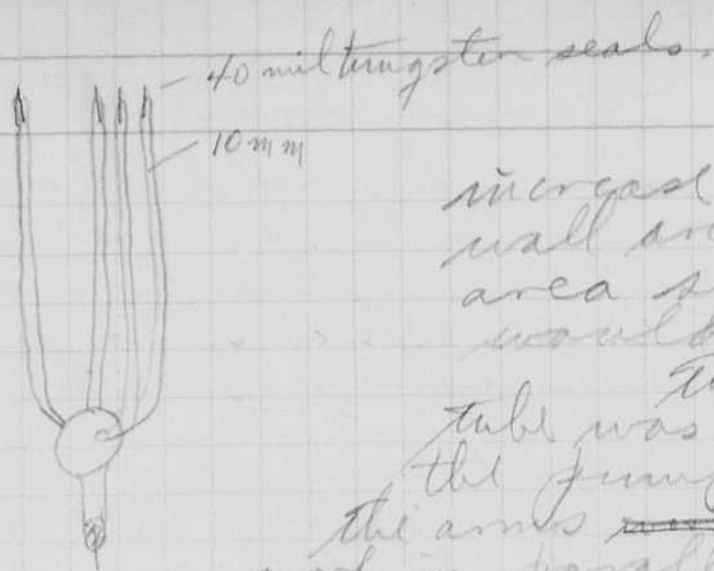 40 mil tungsten seals.
10 mm
increase
wall an
area s
would
tube was
the pump
the arms